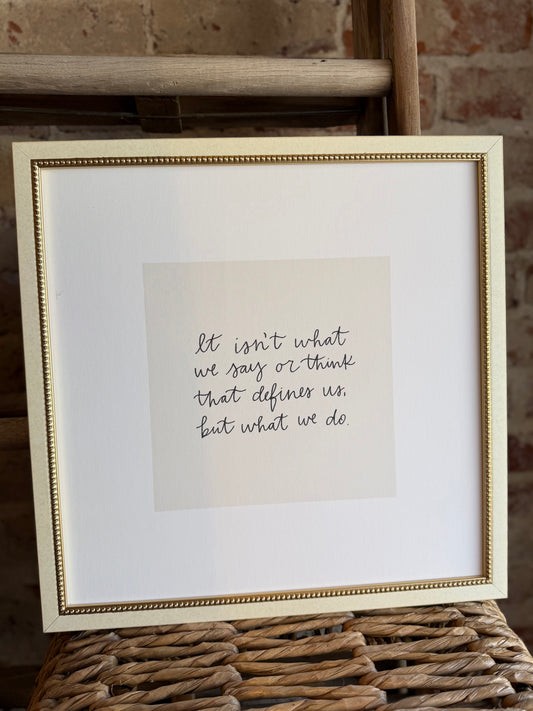 It isn't what
we say or think
that defines us,
but what we do.